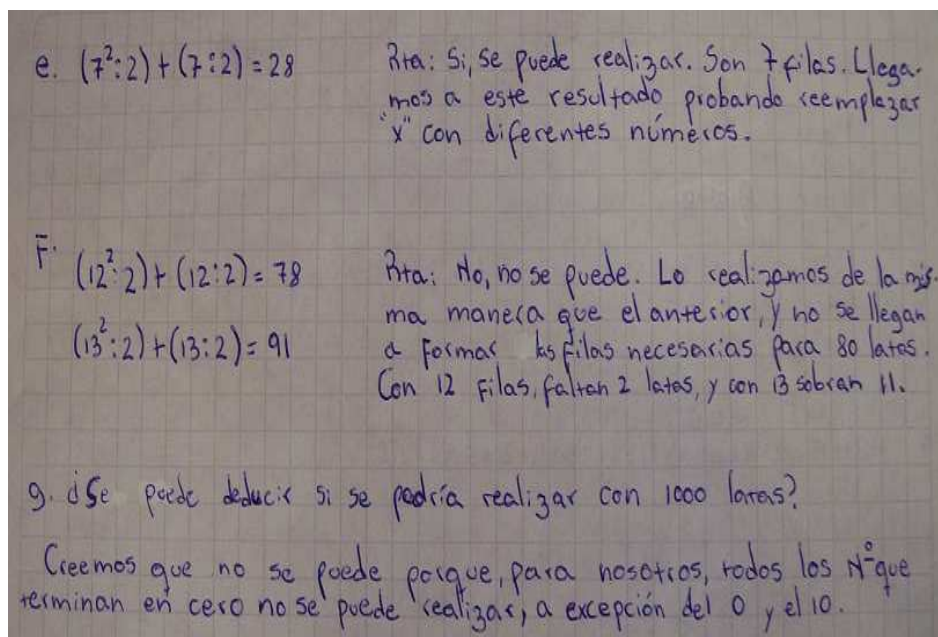 e. (7²:2)+(7:2)=28
Rta: Si, se puede realizar. Son 7 filas. Llega-
mos a este resultado probando reemplazar
"x" con diferentes números.
F. (12²:2)+(12:2)=78
(13²:2)+(13:2)=91
Rta: No, no se puede. Lo realizamos de la mis-
ma manera que el anterior, y no se llegan
a formar las filas necesarias para 80 latas.
Con 12 filas, faltan 2 latas, y con 13 sobran 11.
g. ¿Se puede deducir si se podría realizar con 1000 latas?
Creemos que no se puede porque, para nosotros, todos los Nº que
terminan en cero no se puede realizar, a excepción del 0 y el 10.